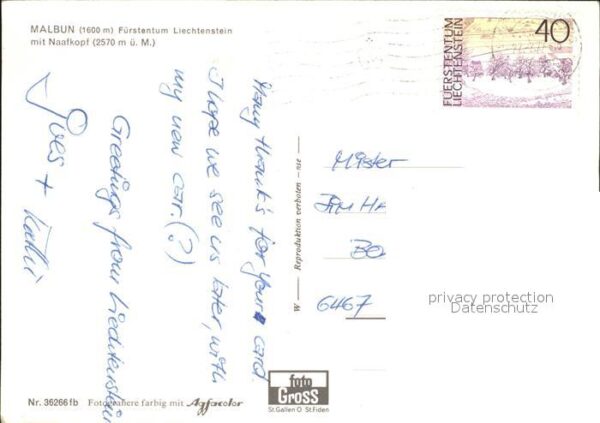 MALBUN (1600 m) Fürstentum Liechtenstein
mit Naafkopf (2570 m ü. M.)
FÜRSTENTUM
LIECHTENSTEIN
40
Many thank's for your card
I hope we see us later, with
my new car. (?)
Greetings from Liechtenstein
Yves + Kathi
W — Reproduktion verboten - nie —
Mister
JIM HA
BO
6467
privacy protection
Datenschutz
foto
GROSS
St. Gallen O St. Fiden
Nr. 36266 fb Fotografiere farbig mit Agfacolor